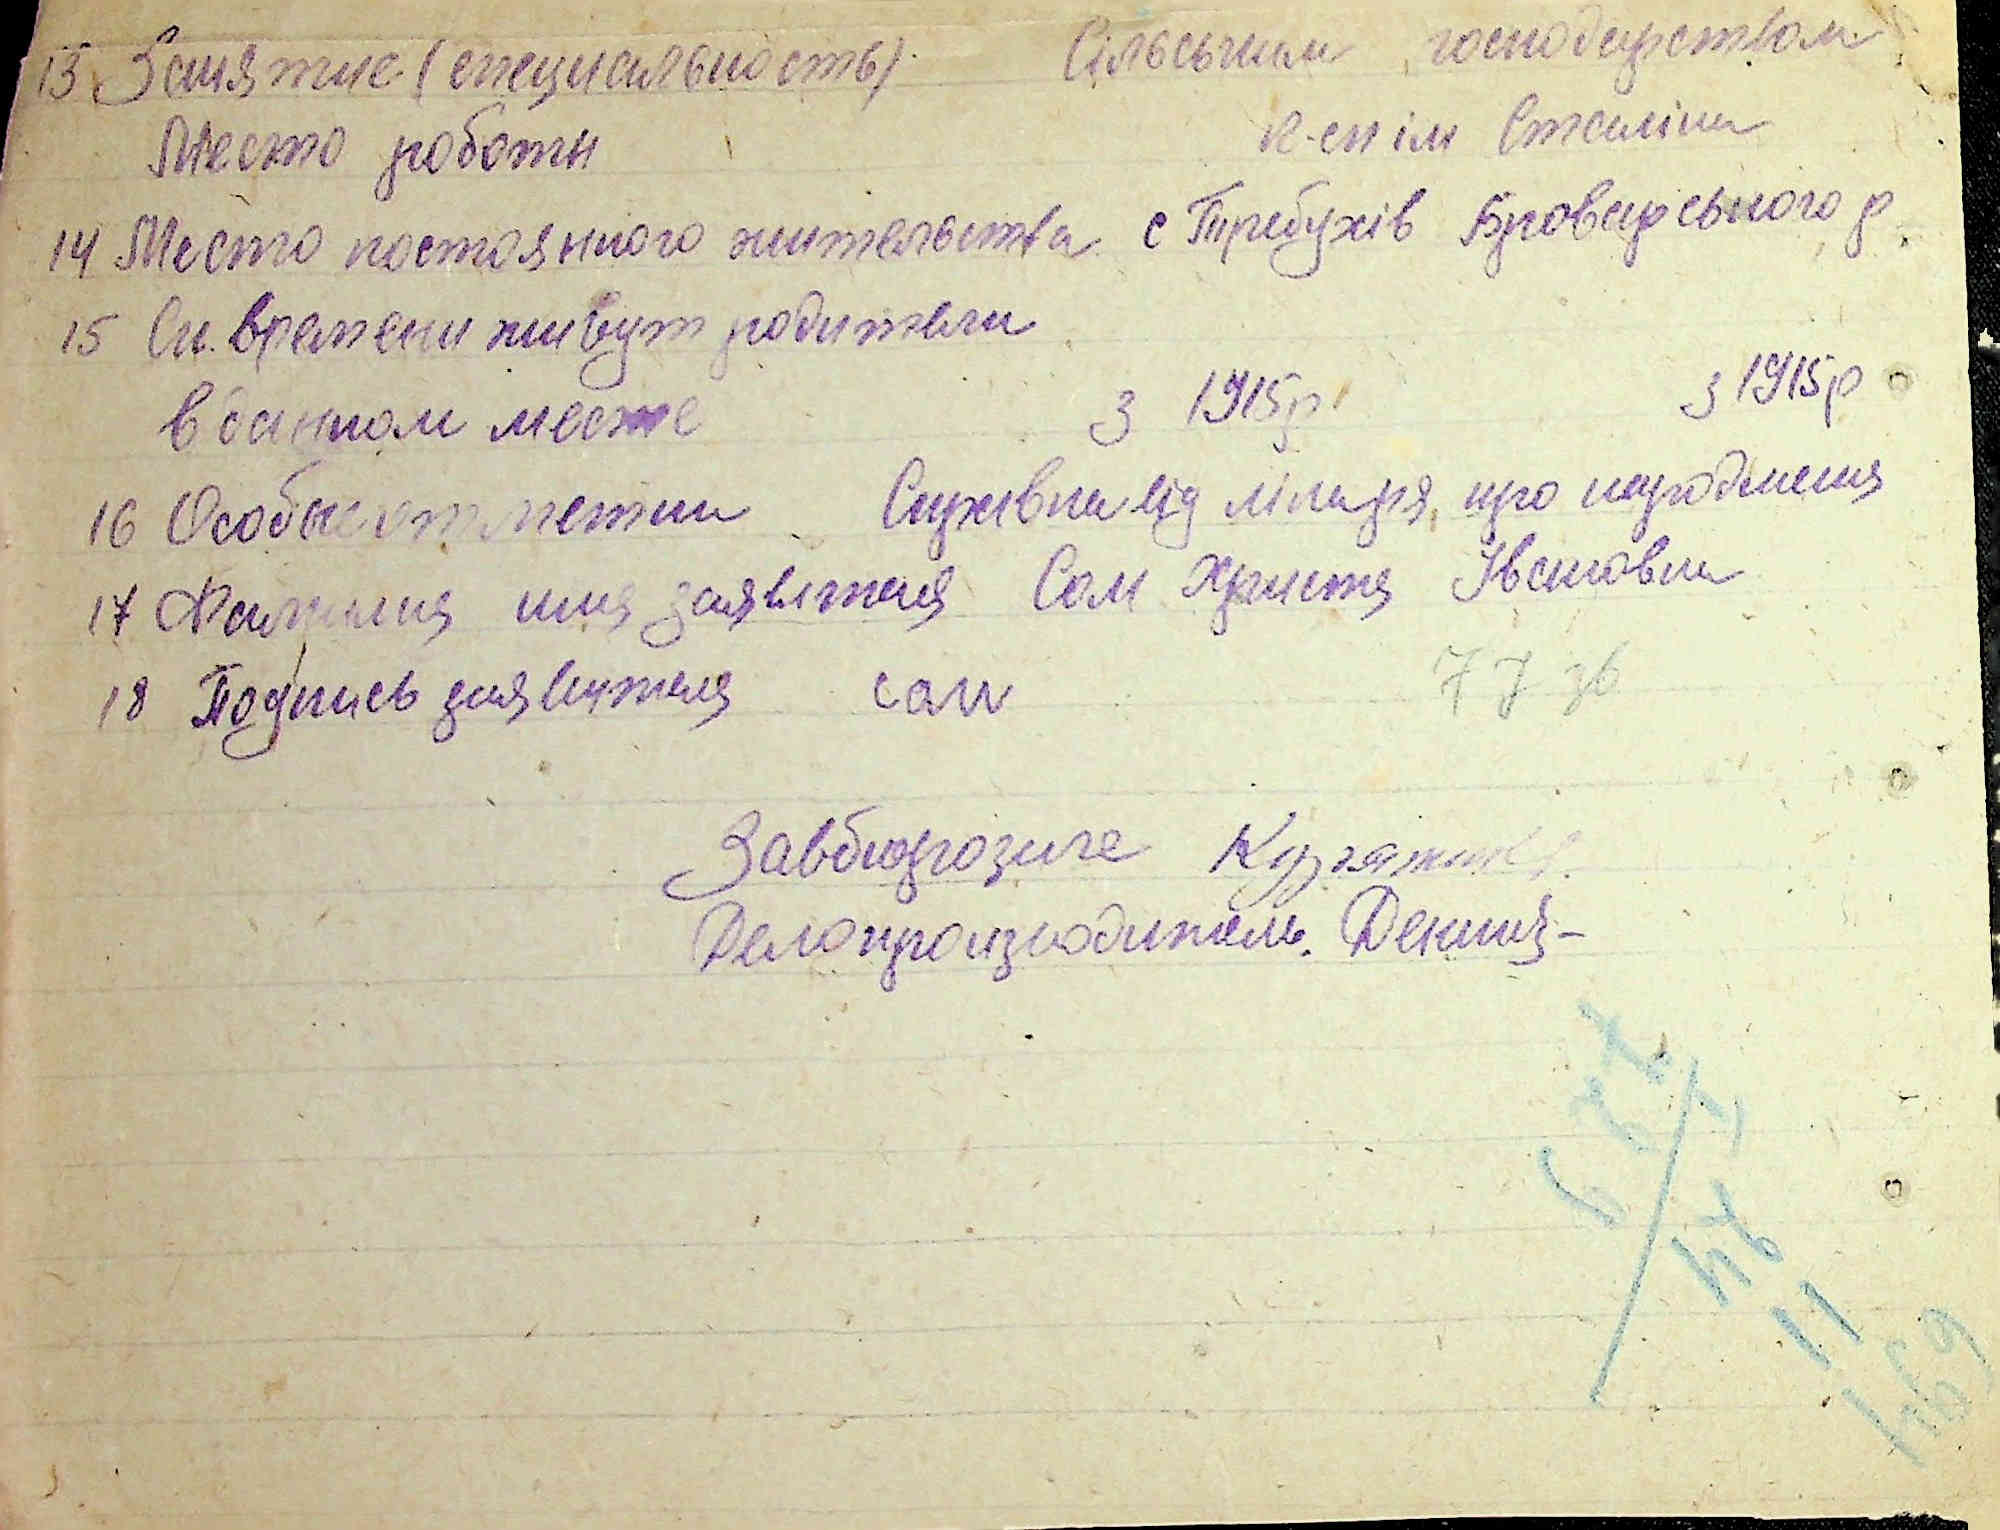 13 Занятие (специальность). Сільським господарством
Место роботи к-сп ім Сталіна
14 Место постоянного жительства с Требухів Броварського р.
15 Ск. времени живут родители
в данном месте з 1915р з 1915р
16 Особые отметки Справка від лікаря, про народження
17 Фамилия имя заявителя Сом Христя Івановна
18 Подпись заявителя Сом
77 зв
Завбюрозаге
Делопроизводитель.